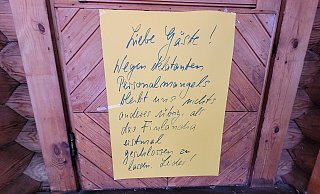 Liebe Gäste!
Wegen eklatanten
Personalmangels
bleibt uns nichts
anderes übrig als
das Finlandia
erstmal
geschlossen zu
lassen. Leider!